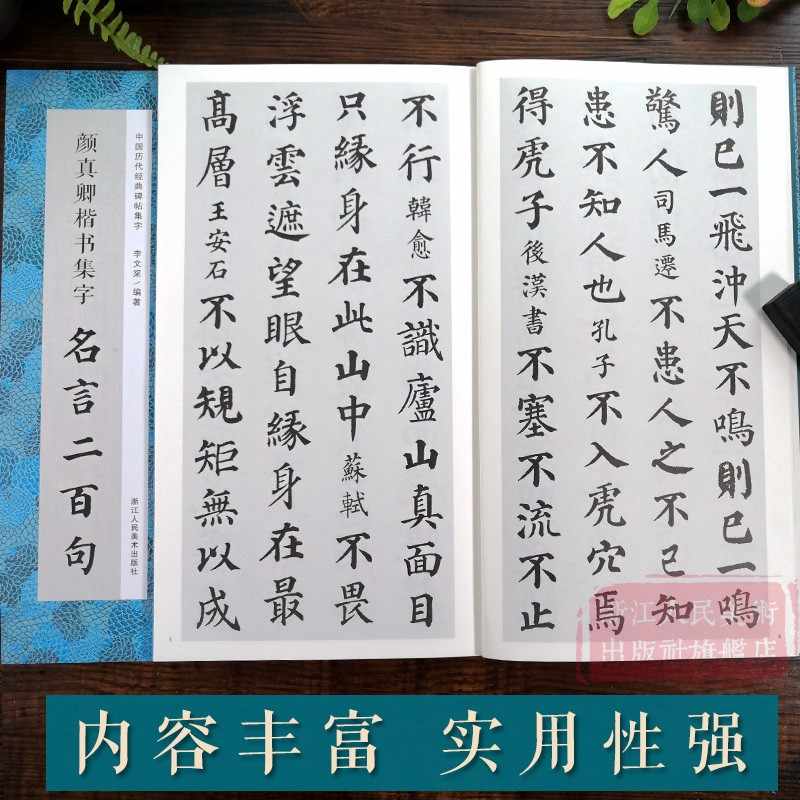 中国历代经典碑帖集字 李文采/编著
浙江人民美术出版社
颜真卿楷书集字
名言二百句
則已一飛沖天不鳴則已一鳴
驚人司馬遷不患人之不己知
患不知人也孔子不入虎穴焉
得虎子後漢書不塞不流不止
不行韓愈不識廬山真面目
只緣身在此山中蘇軾不畏
浮雲遮望眼自緣身在最
髙層王安石不以規矩無以成
浙江人民美術
出版社旗艦店
内容丰富 实用性强